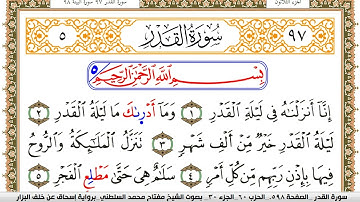 سورة القدر ٩٧ سورة البينة ٩٨
الجزء الثلاثون
٥ سُورَةُ القَدْرِ ٩٧
بِسْمِ اللَّهِ الرَّحْمَٰنِ الرَّحِيمِ ٥
إِنَّا أَنزَلْنَٰهُ فِي لَيْلَةِ الْقَدْرِ ١ وَمَا أَدْرَىٰكَ مَا لَيْلَةُ الْقَدْرِ ٢
لَيْلَةُ الْقَدْرِ خَيْرٌ مِّنْ أَلْفِ شَهْرٍ ٣ تَنَزَّلُ الْمَلَٰئِكَةُ وَالرُّوحُ
فِيهَا بِإِذْنِ رَبِّهِم مِّن كُلِّ أَمْرٍ ٤ سَلَٰمٌ هِيَ حَتَّىٰ مَطْلِعِ الْفَجْرِ ٥
سورة القدر الصفحة ٥٩٨. الحزب ٦٠ الجزء ٣٠ بصوت الشيخ مفتاح محمد السلطني برواية إسحاق عن خلف البزار